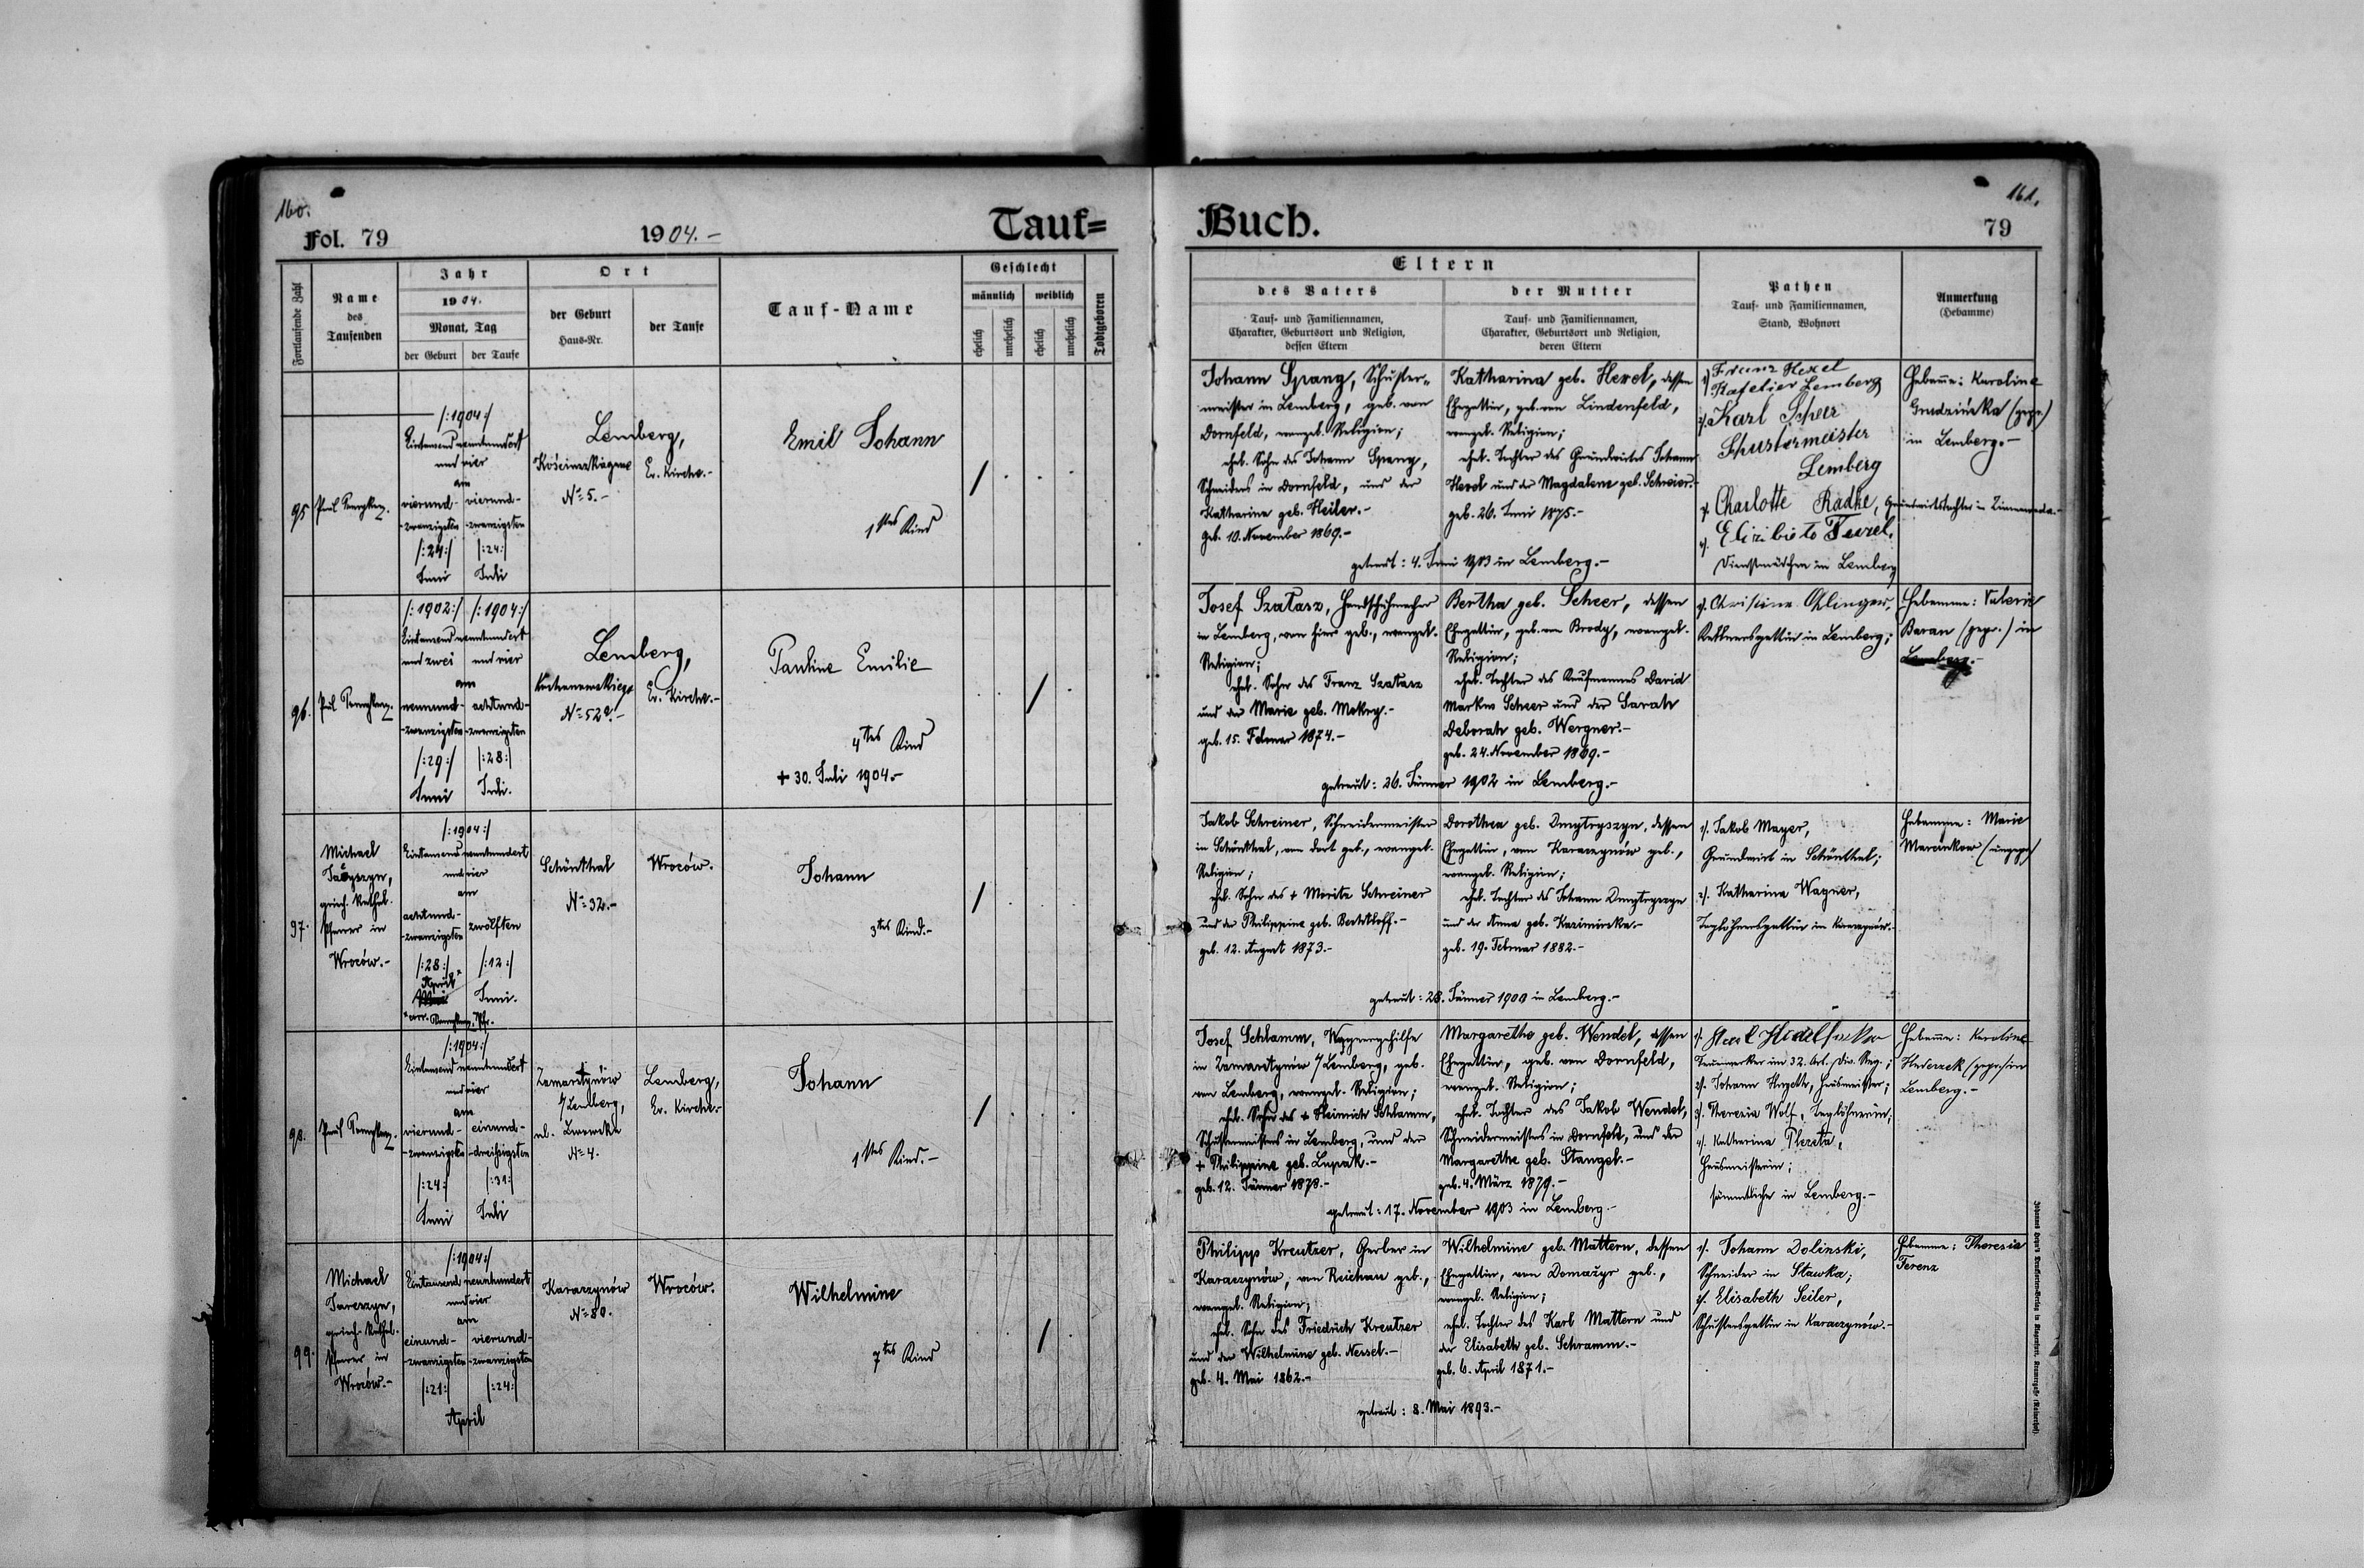 160.
Fol. 79
1904.-
Tauf=
Fortlaufende Zahl
Name
des
Taufenden
Jahr
1904.
Monat, Tag
der Geburt
der Taufe
Ort
der Geburt
Haus-Nr.
der Taufe
Tauf-Name
Geschlecht
männlich
weiblich
ehelich
unehelich
ehelich
unehelich
Todtgeboren
95
/:1904:/
Eintausend neunhundert
und vier
am
vierund-
-zwanzigsten
/:24:/
Juni
vierund-
-zwanzigsten
/:24:/
Juli
Lemberg,
N=5.-
Ev. Kirche.-
Emil Johann
1tes Kind
96.
/:1902:/
/:1904:/
Eintausend neunhundert
und zwei
und vier
am
neunund-
-zwanzigsten
/:29:/
Juni
achtund-
-zwanzigsten
/:28:/
Juli.
Lemberg,
Ev. Kirche.-
Pauline Emilie
4tes Kind
+ 30. Juli 1904.-
97.
Michael
griech. kathol.
Pfarrer in
Wroców.-
/:1904:/
Eintausend neunhundert
und vier
am
achtund-
-zwanzigsten
/:28:/
April
zwölften
/:12:/
Juni.
Schönthal
N=32.-
Wroców.
Johann
3tes Kind.-
98.
/:1904:/
Eintausend neunhundert
und vier
am
vierund-
-zwanzigsten
/:24:/
Juni
einund-
-dreißigsten
/:31:/
Juli
Zamarstynów
b/Lemberg,
ul. Lwowska
N=4.
Lemberg,
Ev. Kirche.-
Johann
1tes Kind.-
99.
Michael
griech. kathol.
Pfarrer in
Wroców.-
/:1904:/
Eintausend neunhundert
und vier
am
einund-
-zwanzigsten
/:21:/
vierund-
-zwanzigsten
/:24:/
April
Karaczynów
N=80.
Wroców.
Wilhelmine
7tes Kind
161.
Buch.
79
Eltern
des Vaters
Tauf- und Familiennamen,
Charakter, Geburtsort und Religion,
dessen Eltern
der Mutter
Tauf- und Familiennamen,
Charakter, Geburtsort und Religion,
deren Eltern
Pathen
Tauf- und Familiennamen,
Stand, Wohnort
Anmerkung
(Hebamme)
Johann Spang, Schuster-
meister in Lemberg, geb. von
Dornfeld, evangel. Religion;
ehel. Sohn des Johann Spang,
Schneiders in Dornfeld, und der
Katharina geb. Heiler.-
geb. 10. November 1869.-
Katharina geb. Hexel, dessen
Ehegattin, geb. von Lindenfeld,
evangel. Religion;
ehel. Tochter des Grundwirtes Johann
Hexel und der Magdalena geb. Schreier.-
geb. 26. Juni 1875.-
getraut: 4. Juni 1903 in Lemberg.-
1) Franz Hexel
Lemberg
2. Karl Scheer
Schustermeister
Lemberg
3. Charlotte Radke,
4.
Dienstmädchen in Lemberg
Hebamme: Karoline
Grudzińska (gepr.)
in Lemberg.-
Josef Szatarz, Handschuhmacher
in Lemberg, von hier geb., evangel.
Religion;
ehel. Sohn des Franz Szatarz
und der Marie geb. Mokry.-
geb. 15. Februar 1874.-
Bertha geb. Scheer, dessen
Ehegattin, geb. von Brody, evangel.
Religion;
ehel. Tochter des Kaufmannes David
Markus Scheer und der Sarah
Deborah geb. Wergner.-
geb. 24. November 1869.-
getraut: 26. Jänner 1902 in Lemberg.-
1. Christine
Kellnersgattin in Lemberg;
Hebamme: Valerie
Baran (gepr.) in
Lemberg.-
Jakob Schreiner, Schneidermeister
in Schönthal, von dort geb., evangel.
Religion;
ehel. Sohn des + Moritz Schreiner
und der Philippine geb. Bechtloff.-
geb. 12. August 1873.-
Dorothea geb. Dmytryszyn, dessen
Ehegattin, von Karaczynów geb.,
evangel. Religion;
ehel. Tochter des Johann Dmytryszyn
und der Anna geb. Kazimirska.-
geb. 19. Februar 1882.-
getraut: 28. Jänner 1900 in Lemberg.-
1. Jakob Mayer,
Grundwirt in Schönthal;
2. Katharina Wagner,
Taglöhnersgattin in Karaczynów.-
Hebamme: Marie
Marcinkow (ungepr.)
Josef Schlamm, Wagnergehilfe
in Zamarstynów b/Lemberg, geb.
von Lemberg, evangel. Religion;
ehel. Sohn des + Heinrich Schlamm,
Schustermeisters in Lemberg, und der
+ Philippine geb. Lupak.-
geb. 12. Jänner 1878.-
Margarethe geb. Wendel, dessen
Ehegattin, geb. von Dornfeld,
evangel. Religion;
ehel. Tochter des Jakob Wendel,
Schneidermeisters in Dornfeld, und der
Margarethe geb. Stangel.-
geb. 4. März 1879.-
getraut: 17. November 1903 in Lemberg.-
1.
2. Johann Herzeth, Hausmeister;
3. Theresia Wolf, Taglöhnerin;
4. Katharina
Hausmeisterin;
sämmtliche in Lemberg.-
Hebamme: Karoline
(gepr.) in
Lemberg.-
Philipp Kreutzer, Gerber in
Karaczynów, von Reichau geb.,
evangel. Religion;
ehel. Sohn des Friedrich Kreutzer
und der Wilhelmine geb. Nessel.-
geb. 4. Mai 1862.-
Wilhelmine geb. Mattern, dessen
Ehegattin, von Domażyr geb.,
evangel. Religion;
ehel. Tochter des Karl Mattern und
der Elisabeth geb. Schramm.-
geb. 6. April 1871.-
getraut: 8. Mai 1893.-
1. Johann Dolinski,
Schneider in Stawka;
2. Elisabeth Seiler,
Schustersgattin in Karaczynów.-
Hebamme: Theresia
Ferenz